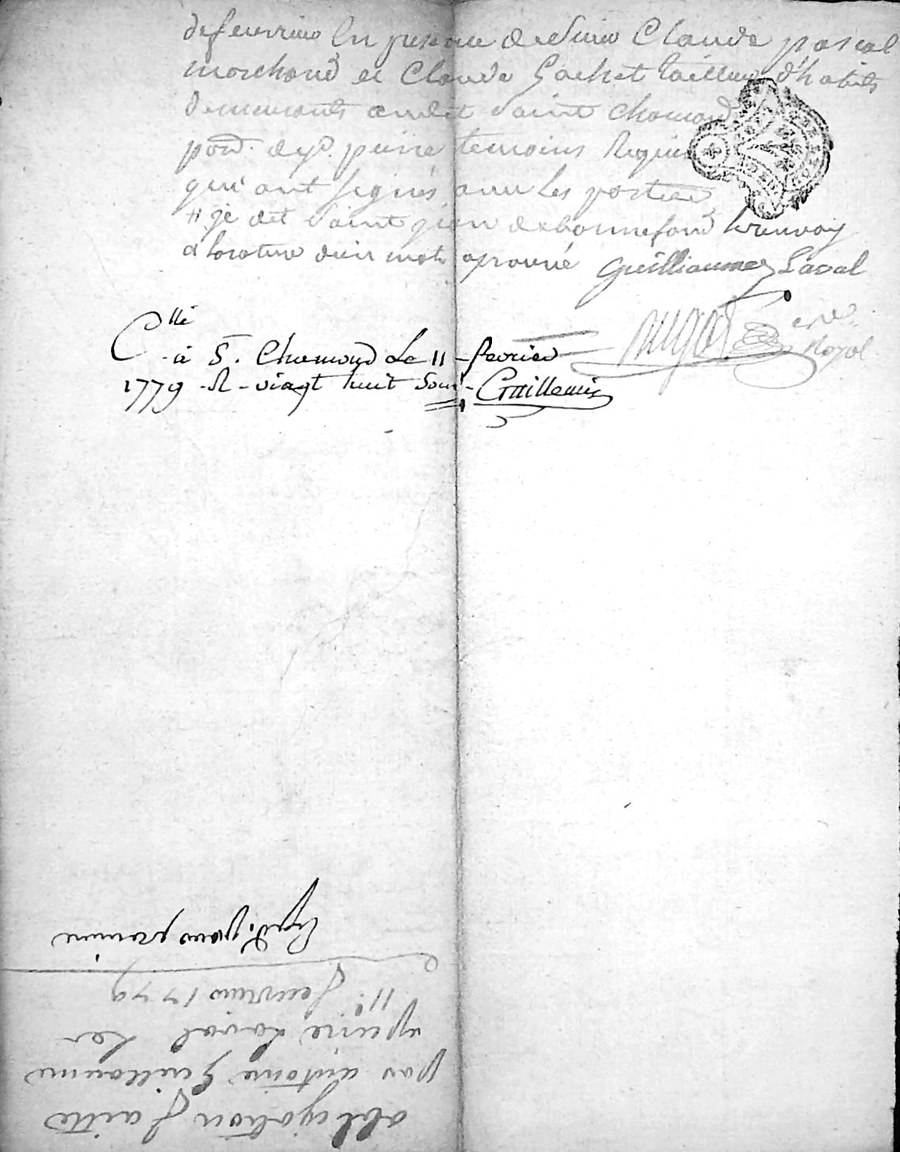 de feuvrier En presence de Sieur Claude pascal
marchand et Claude Gachet tailleur d'habits
demeurants audit Saint Chamond
pierre temoins Requis
qui ont signés avec les parties
dit Saint de bonnefond Renvoy
mots aprouvé Guilliaume Laval
Dugas
Royal
C.llé
à S. Chamond Le 11 fevrier
1779 R vingt huit Sous Guillemin
obligation faitte
par antoine Guillaume
a pierre Laval Le
11e. feuvrier 1779
Expd. pour